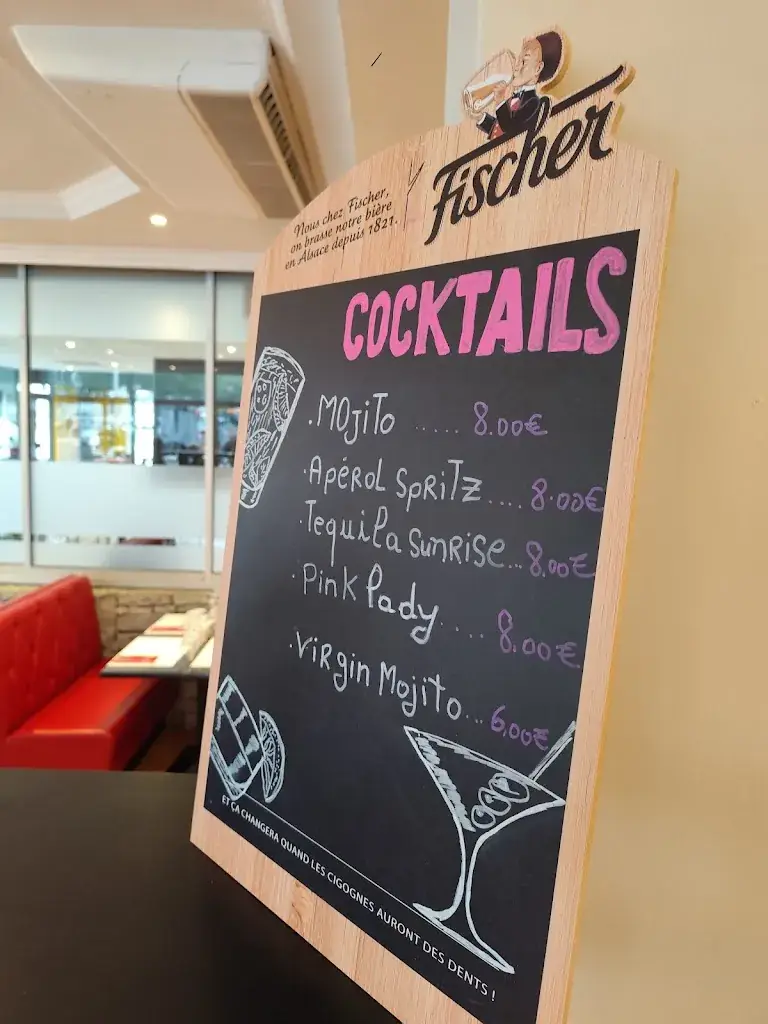 Fischer
Nous chez Fischer,
on brasse notre bière
en Alsace depuis 1821.
COCKTAILS
.MOJiTo ...... 8.00€
.APÉROL SPRiTZ .... 8.00€
.Tequila SunRiSE... 8.00€
.Pink lady .... 8.00€
.ViRgin Mojito... 6.00€
ET ÇA CHANGERA QUAND LES CIGOGNES AURONT DES DENTS !